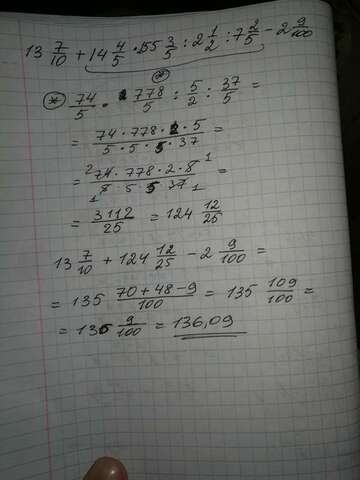 13 7/10 + 14 4/5 · 155 3/5 : 2 1/2 : 7 2/5 - 2 9/100
*
* 74/5 · 778/5 : 5/2 : 37/5 =
= 74 · 778 · 2 · 5 / 5 · 5 · 5 · 37 =
= 2 74 · 778 · 2 · 5 1 / 1 5 · 5 · 5 · 37 1 =
= 3112/25 = 124 12/25
13 7/10 + 124 12/25 - 2 9/100 =
= 135 70 + 48 - 9/100 = 135 109/100 =
= 136 9/100 = 136,09